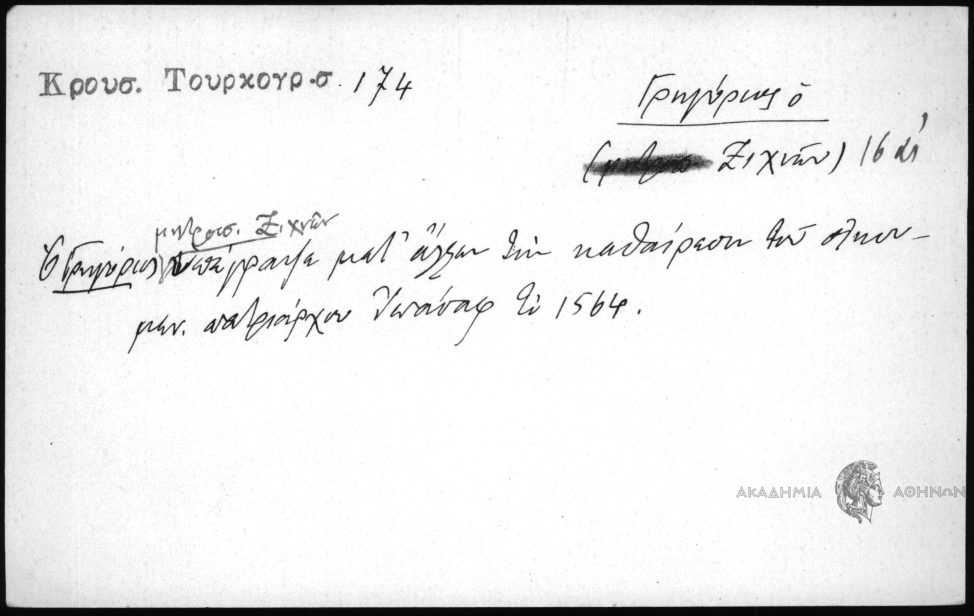 Κρουσ. Τουρκογρ.σ. 174
Γρηγόριος ὁ
(Ζιχνῶν) 16 αἰ
μητροπ. Ζιχνῶν
Ὁ Γρηγόριος ὑπέγραψε μετ' ἄλλων τὴν καθαίρεση τοῦ οἰκου-
μεν. πατριάρχου Ἰωάσαφ τῷ 1564.
ΑΚΑΔΗΜΙΑ ΑΘΗΝΩΝ